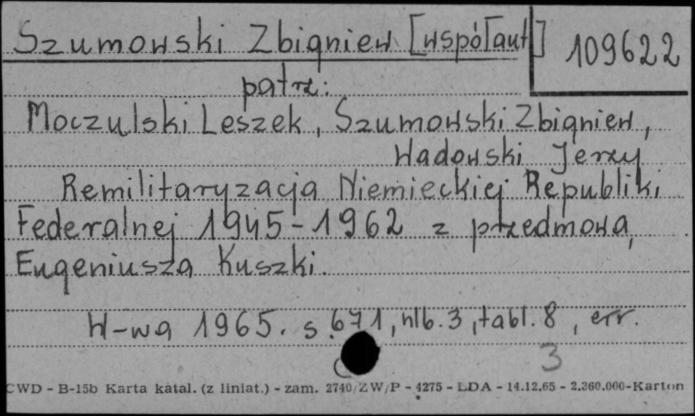 Szumowski Zbigniew [współaut] 109622
patrz:
Moczulski Leszek, Szumowski Zbigniew,
Wadowski Jerzy
Remilitaryzacja Niemieckiej Republiki
Federalnej 1945-1962 z przedmową
Eugeniusza Kuszki.
W-wa 1965. s. 671, nlb. 3, tabl. 8, err.
3
CWD - B-15b Karta katal. (z liniat.) - zam. 2740/ZW/P - 4275 - LDA - 14.12.65 - 2.360.000-Karton